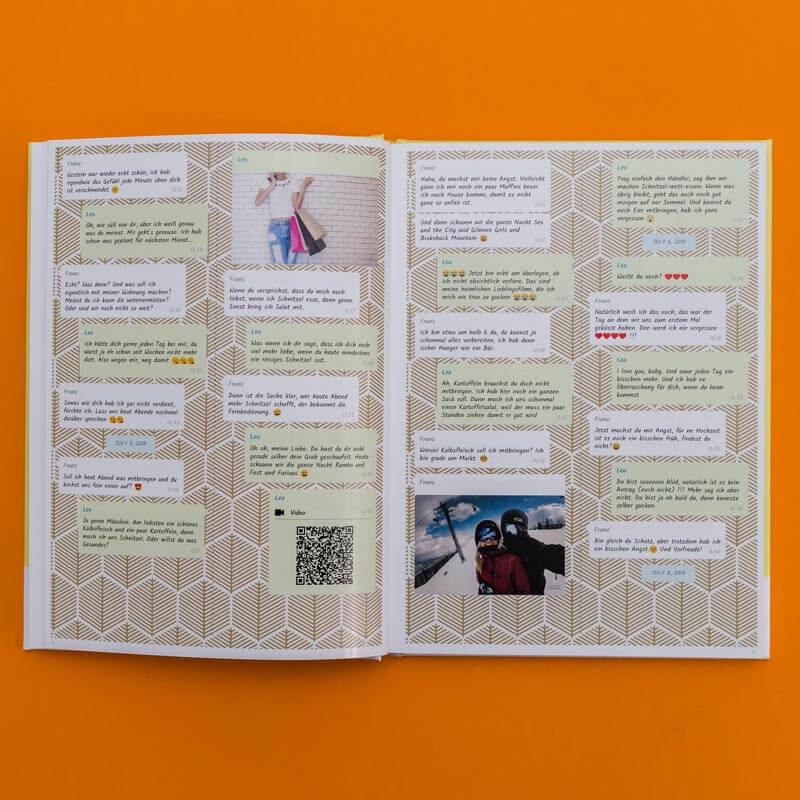 Franz
Gestern war wieder echt schön, ich hab
irgendwie das Gefühl jede Minute ohne dich
ist verschwendet 😕
Leo
Oh, wie süß von dir, aber ich weiß genau
was du meinst. Mir geht's genauso. Ich hab
schon was geplant für nächsten Monat...
Franz
Echt? Was denn? Und was soll ich
eigentlich mit meiner Wohnung machen?
Meinst du ich kann die untervermieten?
Oder sind wir noch nicht so weit?
Leo
Ich hätte dich gerne jeden Tag bei mir, du
warst ja eh schon seit Wochen nicht mehr
dort. Also wegen mir, weg damit 😘😘😘
Franz
Sowas wie dich hab ich gar nicht verdient,
fürchte ich. Lass uns heut Abend nochmal
darüber sprechen 😘😘
JULY 5, 2019
Franz
Soll ich heut Abend was mitbringen und du
kochst uns fein einen auf? 😍
Leo
Ja gerne Mäuslein. Am liebsten ein schönes
Kalbsfleisch und ein paar Kartoffeln, dann
mach ich uns Schnitzel. Oder willst du was
Gesundes?
Leo
Franz
Wenn du versprichst, dass du mich noch
liebst, wenn ich Schnitzel esse, dann gerne.
Sonst bring ich Salat mit.
Leo
Was wenn ich dir sage, dass ich dich noch
viel mehr liebe, wenn du heute mindestens
ein riesiges Schnitzel isst.
Franz
Dann ist die Sache klar, wer heute Abend
mehr Schnitzel schafft, der bekommt die
Fernbedienung. 😄
Leo
Oh oh, meine Liebe. Da hast du dir wohl
gerade selber dein Grab geschaufelt. Heute
schauen wir die ganze Nacht Rambo und
Fast and Furious 😄
Leo
Video
Franz
Haha, du machst mir keine Angst. Vielleicht
gönn ich mir noch ein paar Muffins bevor
ich nach Hause komme, damit es nicht
ganz so unfair ist.
Und dann schauen wir die ganze Nacht Sex
and the City und Gilmore Girls und
Brokeback Mountain 😄
Leo
😂😂😂 Jetzt bin echt am überlegen, ob
ich nicht absichtlich verliere. Das sind
meine heimlichen Lieblingsfilme, die ich
mich nie trau zu gucken 😂😂😂
Franz
Ich bin etwa um halb 6 da, du kannst ja
schonmal alles vorbereiten, ich hab dann
sicher Hunger wie ein Bär.
Leo
Ah, Kartoffeln brauchst du doch nicht
mitbringen. Ich hab hier noch ein ganzen
Sack voll. Dann mach ich uns schonmal
einen Kartoffelsalat, weil der muss ein paar
Stunden ziehen damit er gut wird
Franz
Wieviel Kalbsfleisch soll ich mitbringen? Ich
bin grade am Markt. 🤓
Franz
Leo
Frag einfach den Händler, sag ihm wir
machen Schnitzel-wett-essen. Wenn was
übrig bleibt, geht das auch noch gut
morgen auf ner Semmel. Und kannst du
noch Eier mitbringen, hab ich ganz
vergessen 😲
JULY 6, 2019
Leo
Weißt du noch? ❤️❤️❤️
Franz
Natürlich weiß ich das noch, das war der
Tag an dem wir uns zum erstem Mal
geküsst haben. Den werd ich nie vergessen
❤️❤️❤️❤️ !!!
Leo
I love you, baby. Und zwar jeden Tag ein
bisschen mehr. Und ich hab ne
Überraschung für dich, wenn du heim
kommst
Franz
Jetzt machst du mir Angst, für ne Hochzeit
ist es noch ein bisschen früh, findest du
nicht?😄
Leo
Du bist soooooo blöd, natürlich ist es kein
Antrag (noch nicht) !!! Mehr sag ich aber
nicht. Du bist ja eh bald da, dann kannste
selber gucken.
Franz
Bin gleich da Schatz, aber trotzdem hab ich
ein bisschen Angst.😕 Und Vorfreude!
JULY 8, 2019